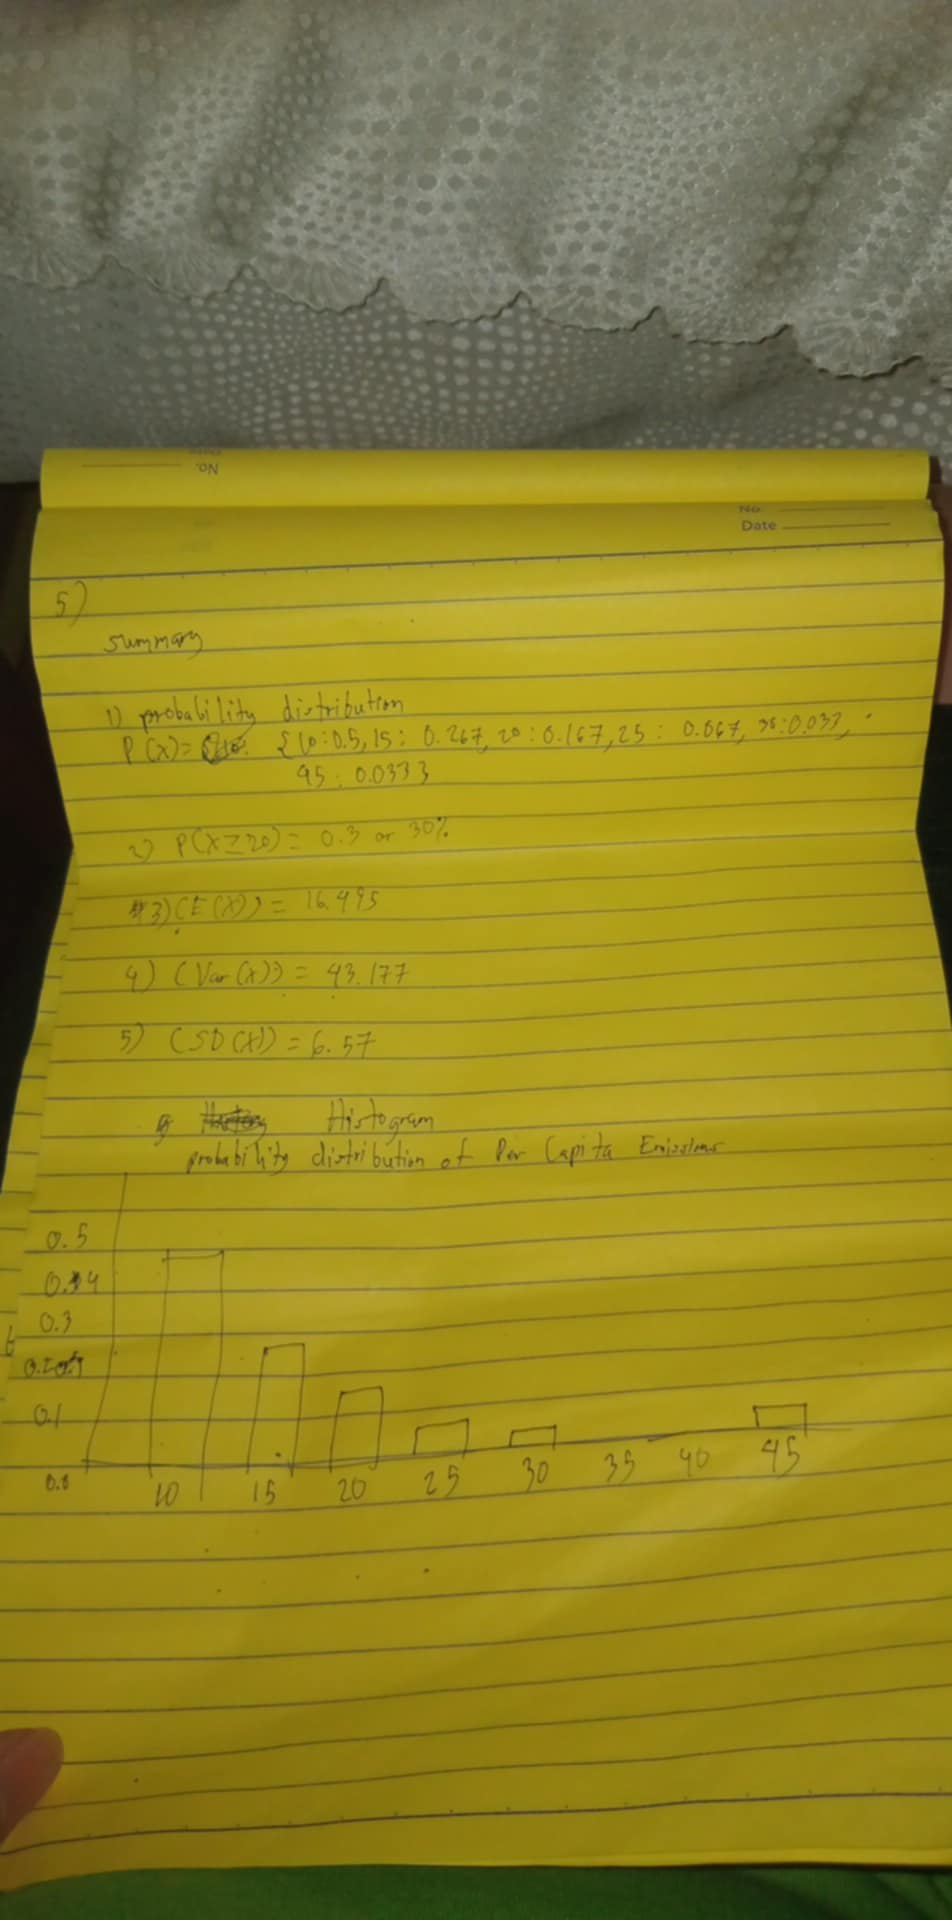 No.
No.
Date
5)
summary
1) probability distribution
P(x)= {10:0.5, 15: 0.267, 20:0.167, 25: 0.067, :0.033,
45: 0.033}
2) P(X≥20)= 0.3 or 30%
3) (E(X)) = 16.495
4) (Var(X)) = 43.177
5) (SD(X)) = 6.57
Histogram
probability distribution of Per Capita Emissions
0.5
0.4
0.3
0.1
0.0
10 15 20 25 30 35 40 45